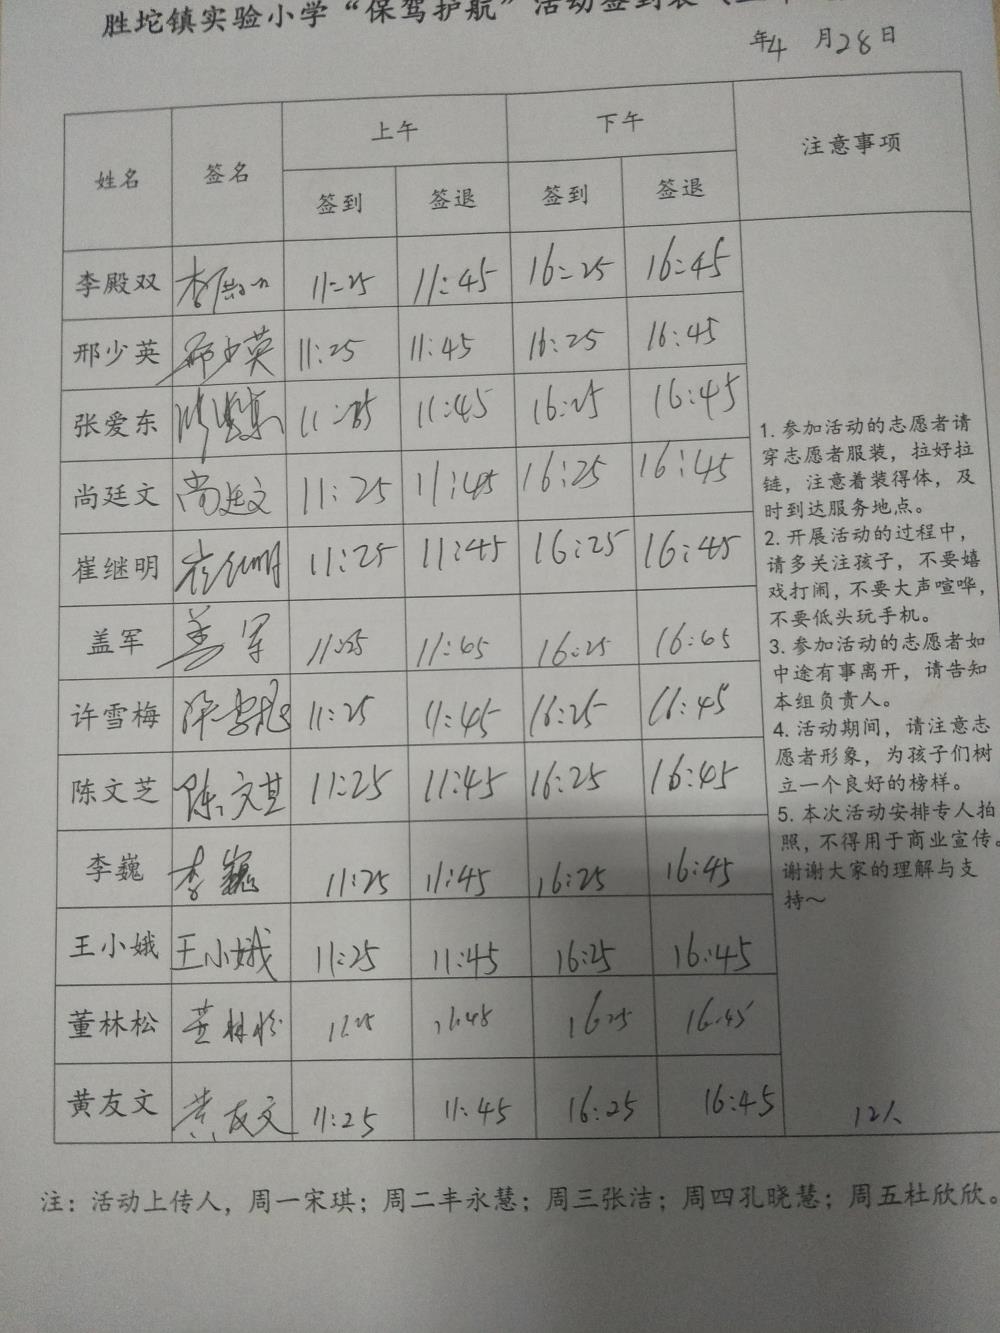 胜坨镇实验小学“保驾护航”活动签到表
年4 月28日
姓名 签名 上午 下午 注意事项
签到 签退 签到 签退
李殿双 11:25 11:45 16:25 16:45
邢少英 邢少英 11:25 11:45 16:25 16:45
张爱东 11:25 11:45 16:25 16:45
尚廷文 尚廷文 11:25 11:45 16:25 16:45
崔继明 崔继明 11:25 11:45 16:25 16:45
盖军 盖军 11:25 11:45 16:25 16:45
许雪梅 许雪梅 11:25 11:45 16:25 16:45
陈文芝 陈文芝 11:25 11:45 16:25 16:45
李巍 李巍 11:25 11:45 16:25 16:45
王小娥 王小娥 11:25 11:45 16:25 16:45
董林松 董林松 11:25 11:45 16:25 16:45
黄友文 黄友文 11:25 11:45 16:25 16:45
1. 参加活动的志愿者请
穿志愿者服装，拉好拉
链，注意着装得体，及
时到达服务地点。
2. 开展活动的过程中，
请多关注孩子，不要嬉
戏打闹，不要大声喧哗，
不要低头玩手机。
3. 参加活动的志愿者如
中途有事离开，请告知
本组负责人。
4. 活动期间，请注意志
愿者形象，为孩子们树
立一个良好的榜样。
5. 本次活动安排专人拍
照，不得用于商业宣传。
谢谢大家的理解与支
持～
12人
注：活动上传人，周一宋琪；周二丰永慧；周三张洁；周四孔晓慧；周五杜欣欣。